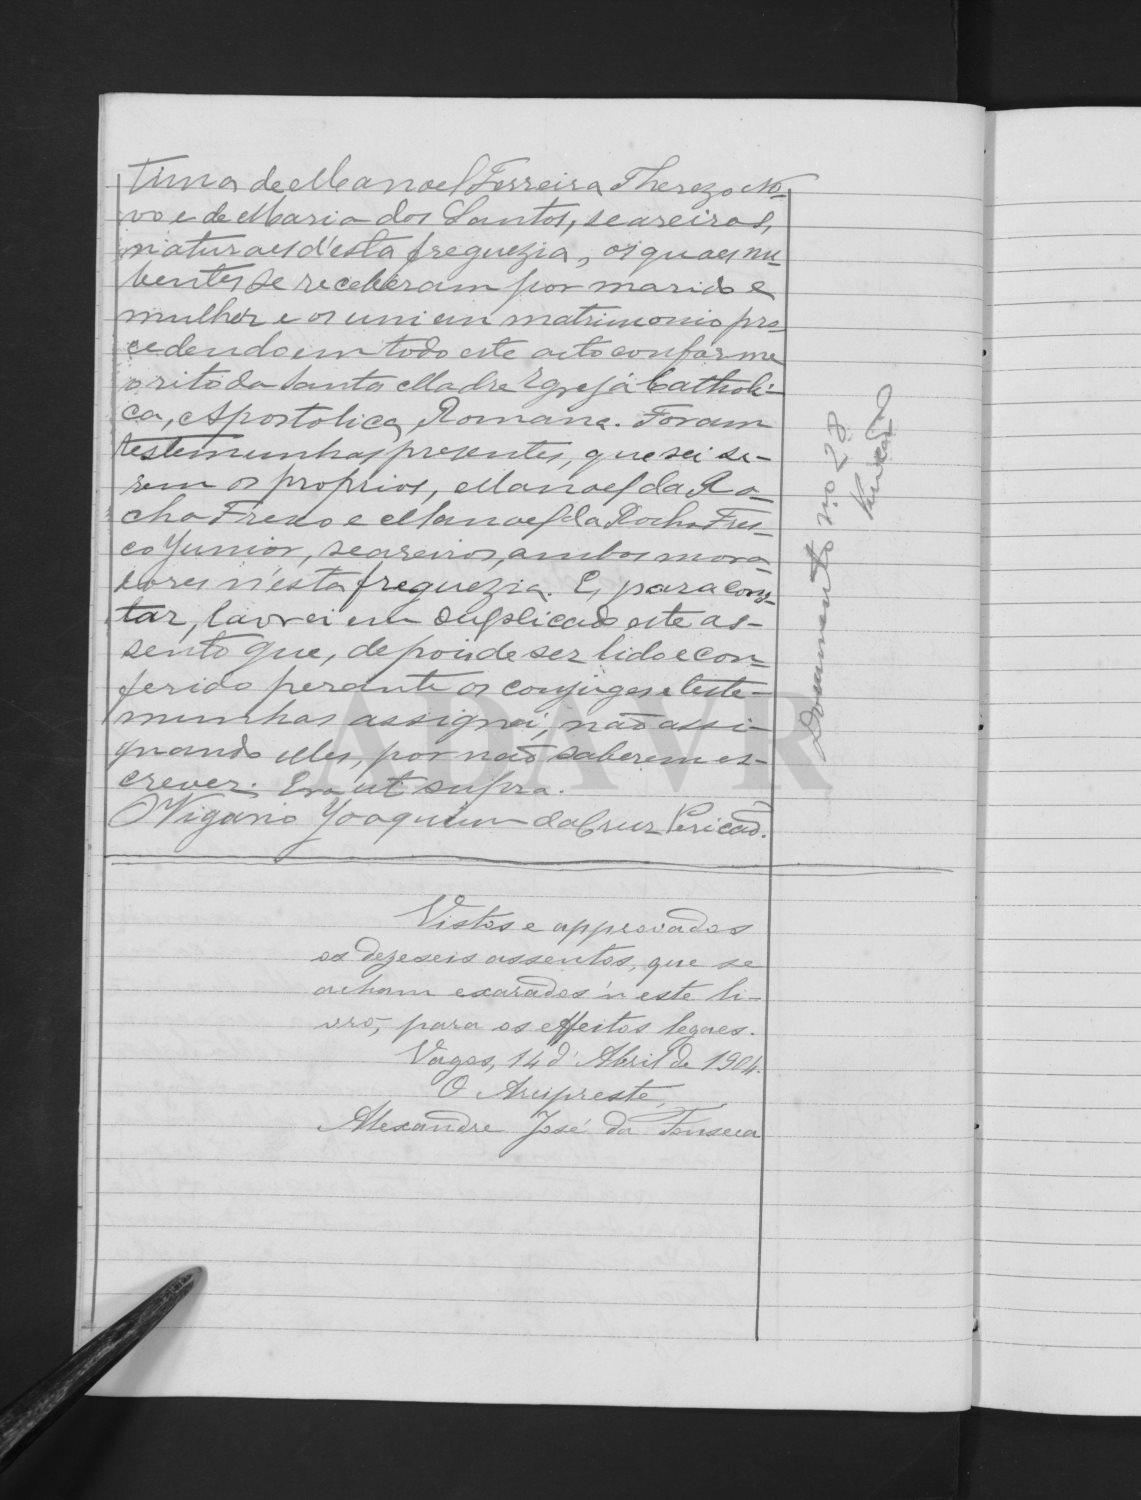 tima de Manoel Ferreira Therezo No-
vo e de Maria dos Santos, seareiros,
naturaes d'esta freguezia, os quaes nu-
bentes se receberam por marido e
mulher e os uni em matrimonio pro-
cedendo em todo este acto conforme
o rito da Santa Madre Egreja Catholi-
ca, Apostolica, Romana. Foram
testemunhas presentes, que sei se-
rem os proprios, Manoel da Ro-
cha Frexo e Manoel da Rocha Fres-
co Junior, seareiros, ambos mora-
dores n'esta freguezia. E, para cons-
tar, lavrei em duplicado este as-
sento que, depois de ser lido e con-
ferido perante os conjuges e teste-
munhas assignei, não assi-
gnando elles, por não saberem es-
crever. Era ut supra.
O Vigario Joaquim da Cruz Pericão.
Documento no 28
Pericão
Vistos e approvados
os dezeseis assentos, que se
acham exarados n'este li-
vro, para os effeitos legaes.
Vagos, 14 d'Abril de 1904.
O Arcipreste,
Alexandre José da Fonseca
ADAVR